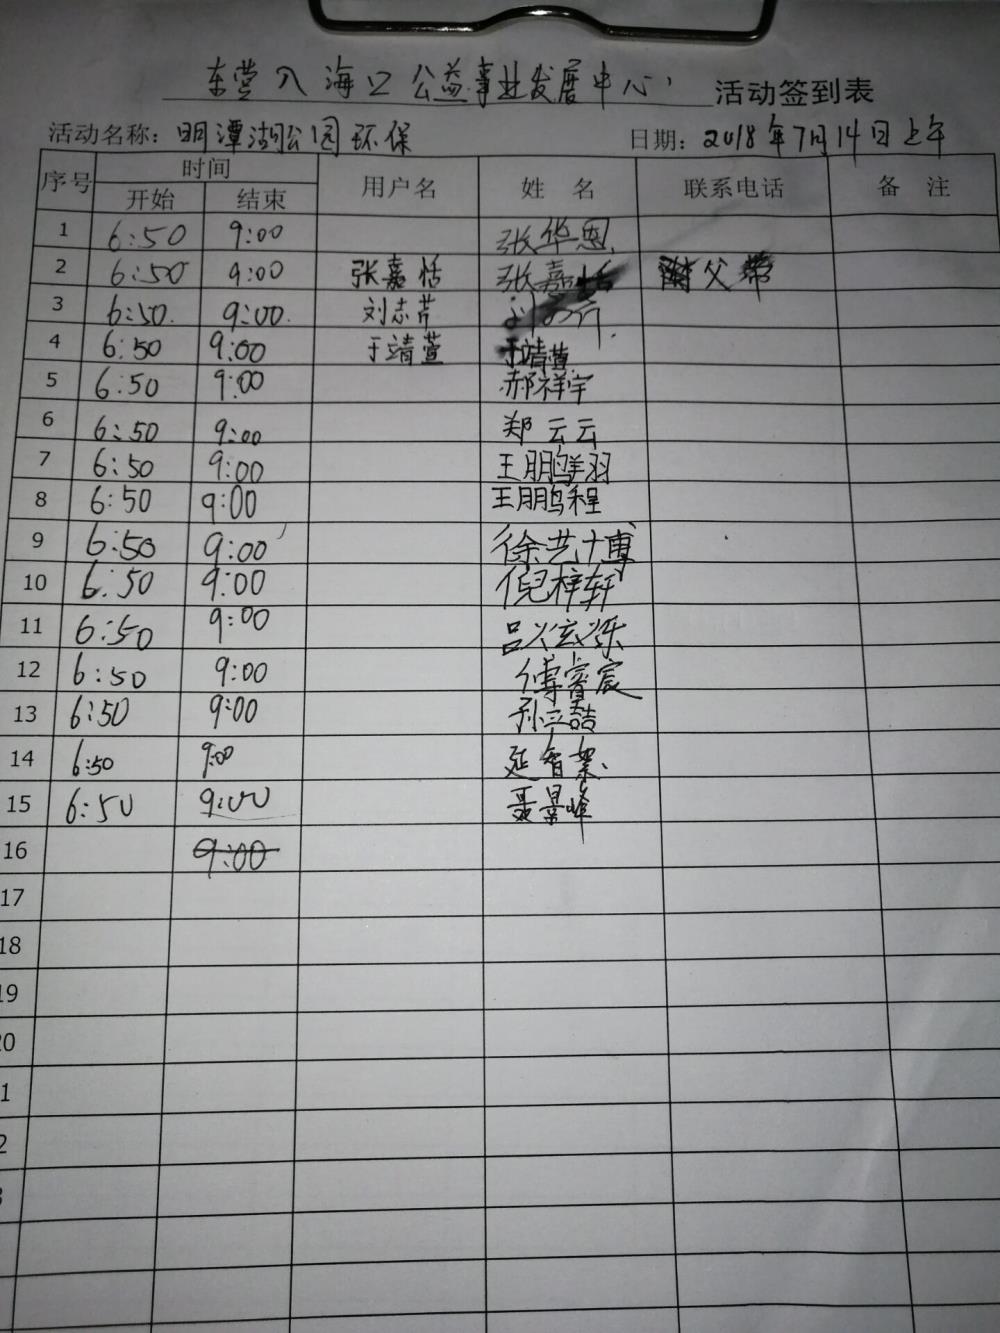 东营入海口公益事业发展中心 活动签到表
活动名称：明潭湖公园环保 日期：2018年7月14日上午
序号 时间 用户名 姓名 联系电话 备注
开始 结束
1 6:50 9:00 张华恩
2 6:50 9:00 张嘉恬 张嘉恬 父带
3 6:50 9:00 刘志芹
4 6:50 9:00 于靖萱 于靖萱
5 6:50 9:00 郝祥宇
6 6:50 9:00 郑云云
7 6:50 9:00 王鹏翔
8 6:50 9:00 王鹏程
9 6:50 9:00 徐艺博
10 6:50 9:00 倪梓轩
11 6:50 9:00 吕
12 6:50 9:00 傅睿宸
13 6:50 9:00 孙立喆
14 6:50 9:00 延智
15 6:50 9:00 聂景峰
16 9:00
17
18
19
20
1
2
3